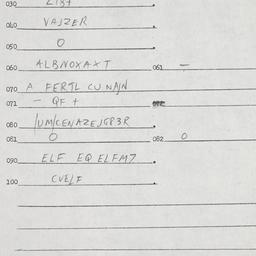 030 2187
040 VAJZER
050 0
060 ALBNOXAXT 061 -
070 A FERTL CU NAJN
071 - QF +
080 /UM/CENAZEJGP3R
081 0 082 0
090 ELF EQ ELFM7
100 CVELF